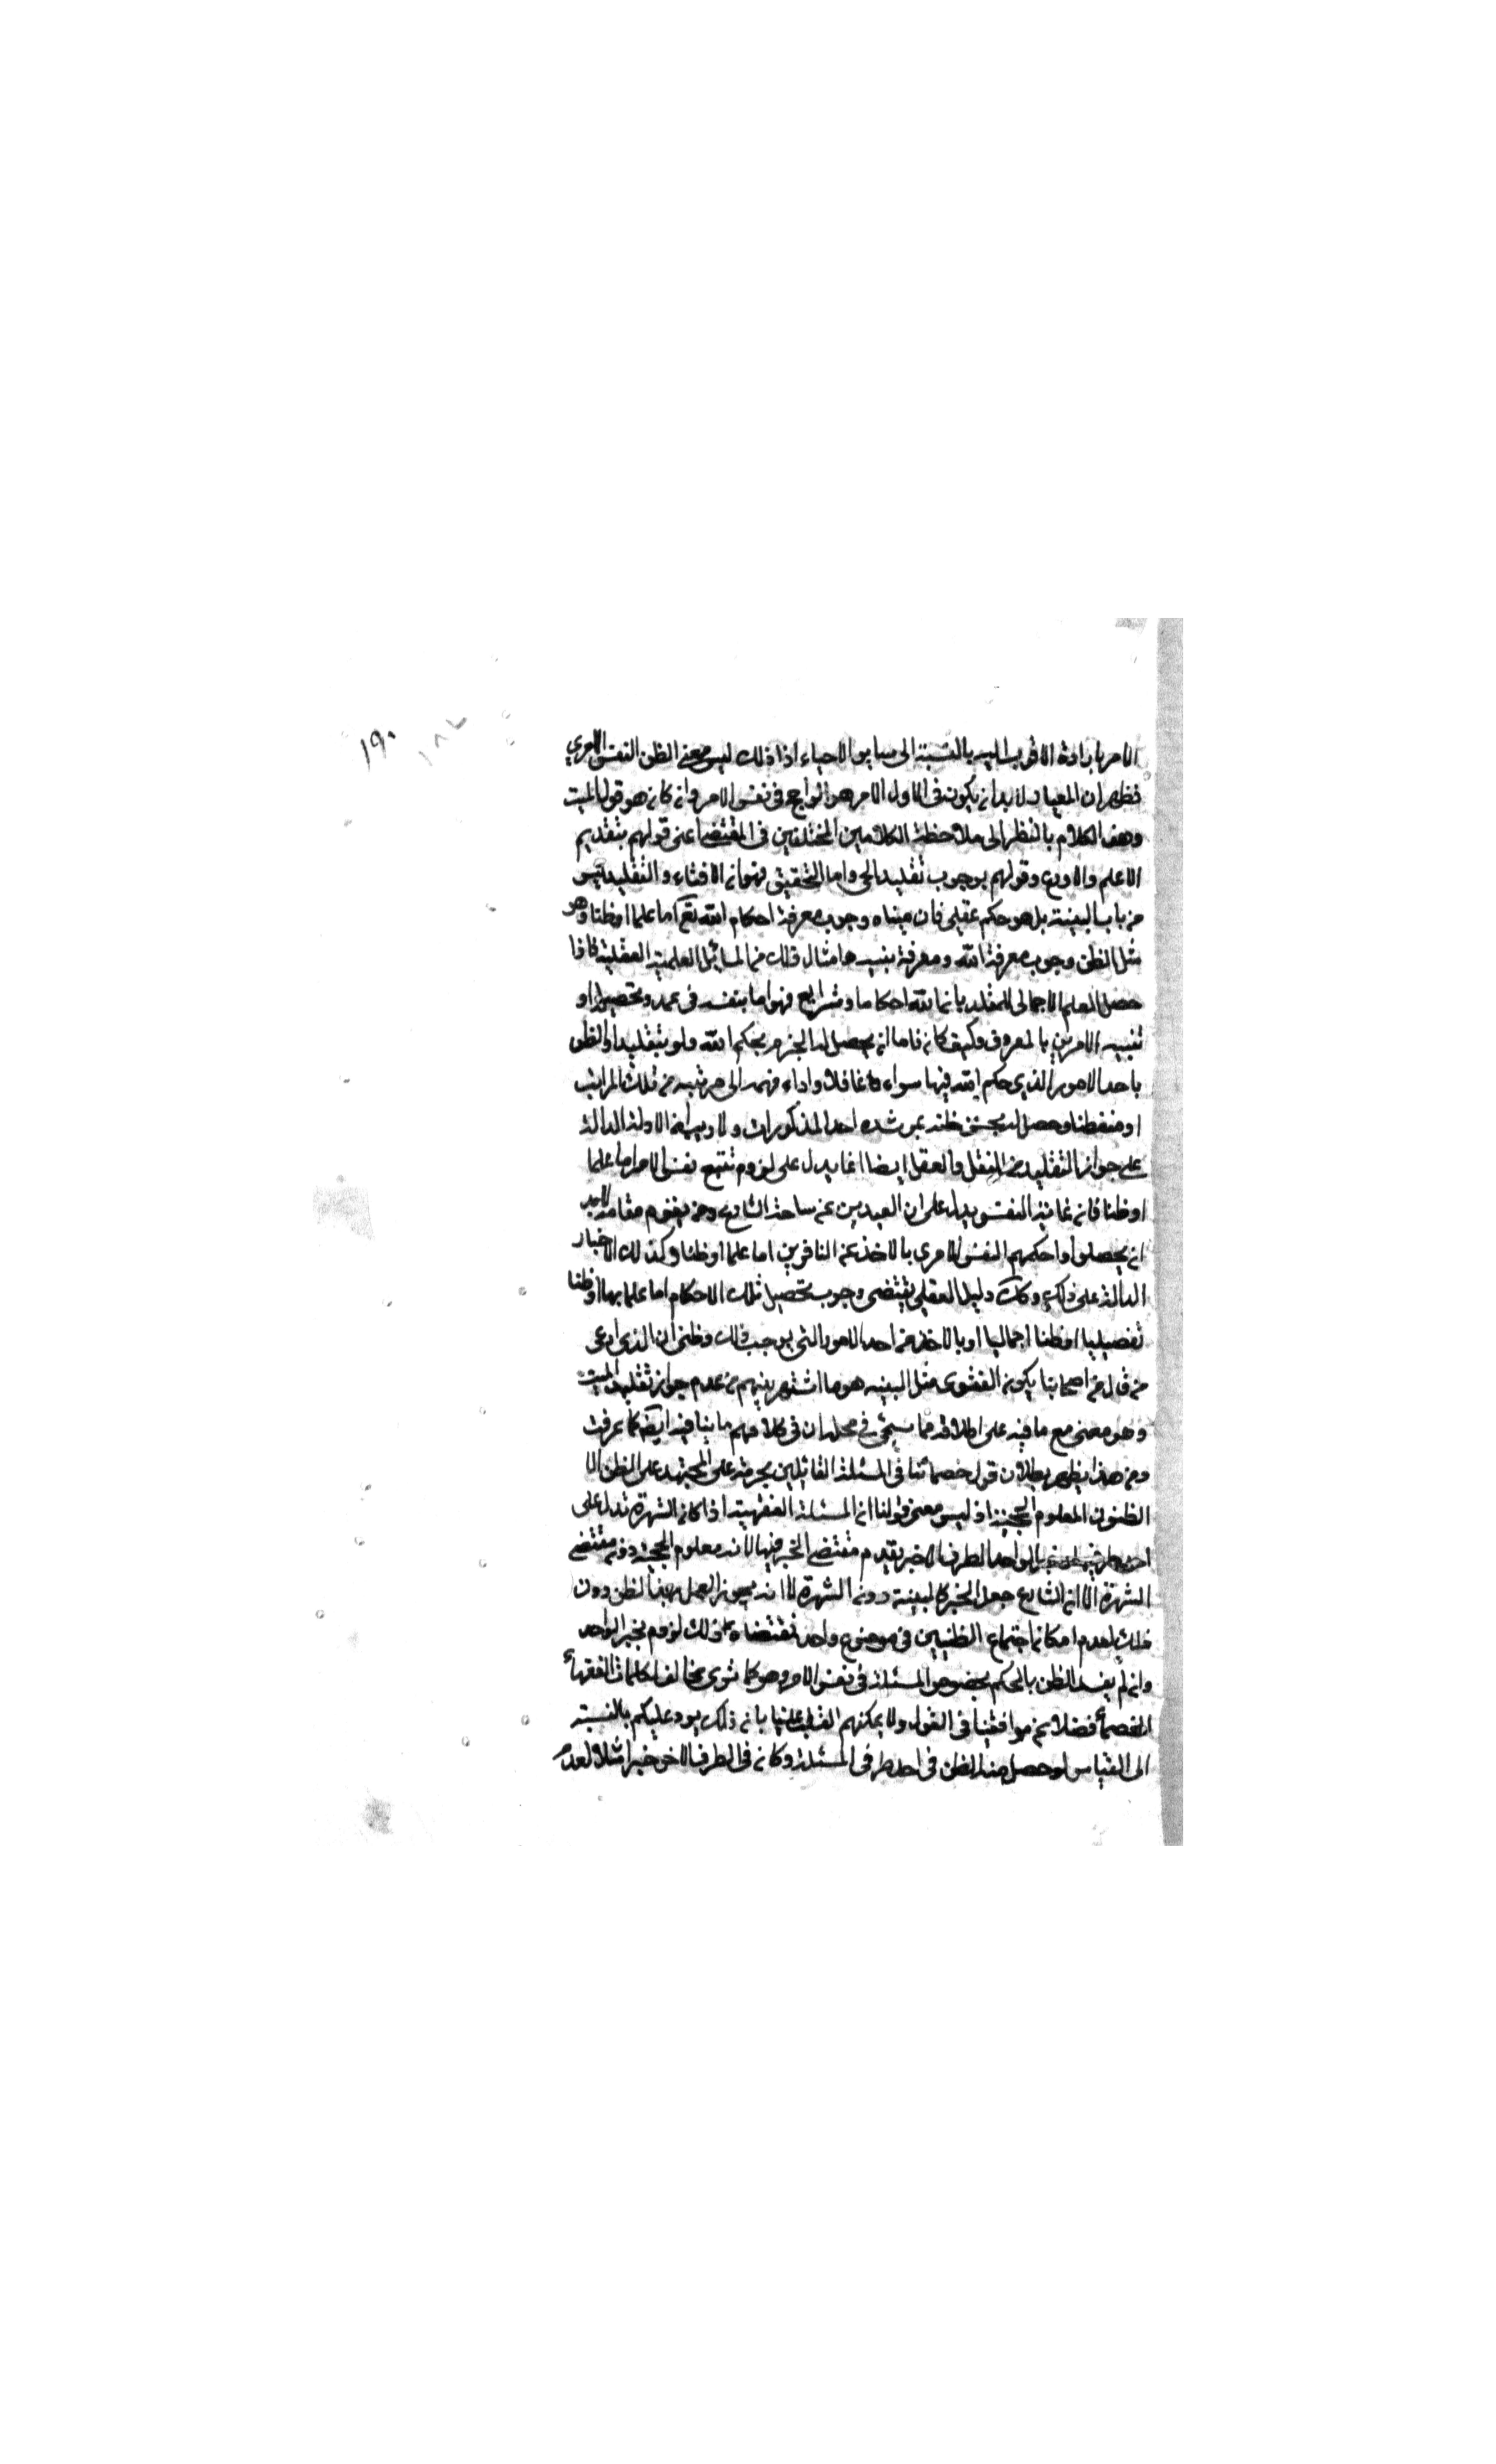 ١٩٠ ١٨٧
الامر بارادة الاقرب اليه بالنسبة الى ساير الاحياء اذا ذلك ليس معنى الظن النفس الامري
فظهر ان المعيار لابد ان يكون في الاول الامر هو الراجح في نفس الامر وان كان هو قول الميت
وهذا الكلام بالنظر الى ملاحظة الكلامين المختلفين في المقتضا عنى قولهم بتقديم
الاعلم والاورع وقولهم بوجوب تقليد الحي واما التحقيق فهو ان الافتاء والتقليد ليس
من باب البينة بل هو حكم عقلي فان مبناه وجوب معرفة احكام الله تع اما علما او ظنا وهو
مثل الظن وجوب معرفة الله ومعرفة نبيه وامثال ذلك من المسائل العلمية العقلية فاذا
حصل العلم الاجمالي للمقلد بان لله احكاما وشرايع فهو اما بنفسه في صدد تحصيلها او
تنبيه الامرين بالمعروف وكيف كان فاما ان يحصل له الجزم بحكم الله ولو بتقليد او الظن
باحد الامور الذي حكم الله فيها سواء غافلا واداء فهمه الى مرتبة من تلك المراتب
او متفطنا وحصل له بحسن ظنه بمرشده احد المذكورات ولا ريب ان الادلة الدالة
على جواز التقليد من النقل والعقل ايضا انما يدل على لزوم تتبع نفس الامر اما علما
او ظنا فان غاية النفس يدل على ان البعيدين عن ساحة الشارع ومن يقوم مقامه لابد
ان يحصلوا احكمهم النفس الامري بالاخذ عن النافرين اما علما او ظنا وكذلك الاخبار
الدالة على ذلك وكك دليل العقلي يقتضي وجوب تحصيل تلك الاحكام اما علما بها او ظنا
تفصيليا او ظنا اجماليا او بالاخذ من احد الامور التي يوجب ذلك وظني ان الذي ادعى
من قال من اصحابنا بكون الفتوى مثل البينه هو ما اشتهر بينهم من عدم جواز تقليد الميت
وهو معنى مع ما فيه على اطلاقه مما سيجئ في محله ان في كلامهم ما ينافيه ايضا كما عرفت
ومن هذا يظهر بطلان قول خصمائنا في المسئلة القائلين بحرمة على المجتهد على الظن الا
الظنون المعلوم الحجية اذ ليس معنى قولنا ان المسئلة الفقهية اذا كان الشهرة تدل على
احد طرفيها وخبر الواحد الطرف الاخر يقدم مقتضى الخبر فيها لانه معلوم الحجية دون مقتضى
الشهرة الا ان الشارع جعل الخبر كالبينة دون الشهرة لا انه يجوز العمل بهذا الظن دون
ذلك لعدم امكان اجتماع الظنيين في موضوع واحد فمقتضاه ذلك لزوم بخبر الواحد
وان لم يفيد الظن بالحكم بخصوص المسئلة في نفس الامر وهو كما ترى مخالف لكلمات الفقهاء
الخصماء فضلا عن موافقينا في القول ولا يمكنهم القلب علينا بان ذلك يرد عليكم بالنسبة
الى القياس لو حصل منه الظن في احد طرفي المسئلة وكان في الطرف الاخر خبر امثلا لعدم